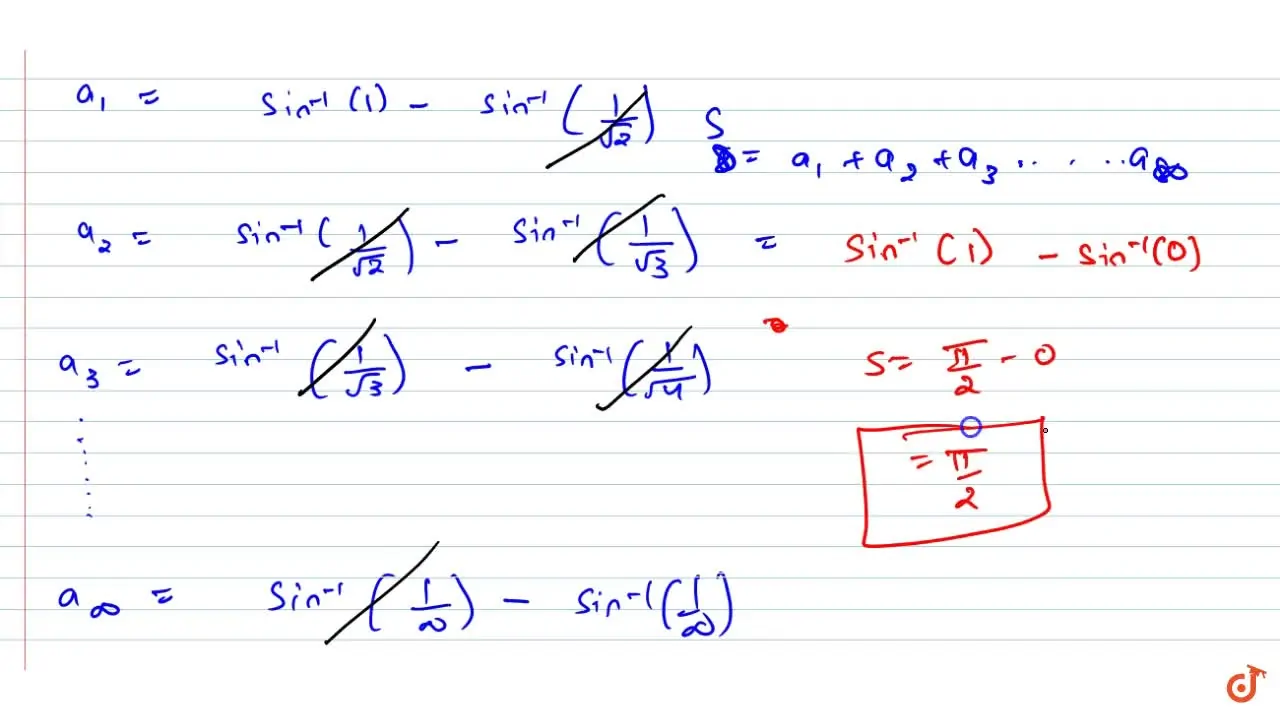 a₁ = sin⁻¹(1) - sin⁻¹(1/√2)
S
= a₁ + a₂ + a₃ ...... a∞
a₂ = sin⁻¹(1/√2) - sin⁻¹(1/√3) = sin⁻¹(1) - sin⁻¹(0)
a₃ = sin⁻¹(1/√3) - sin⁻¹(1/√4)
S = π/2 - 0
= π/2
a∞ = sin⁻¹(1/∞) - sin⁻¹(1/∞)